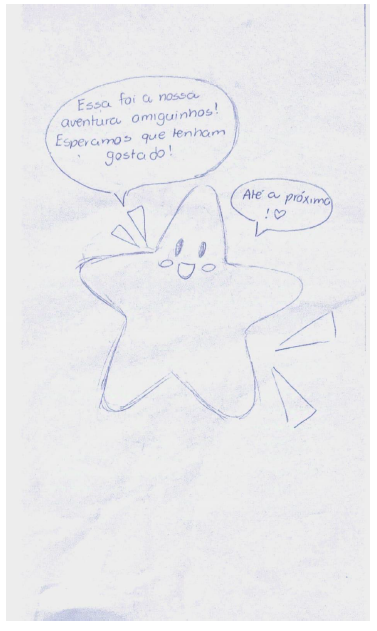 Essa foi a nossa
aventura amiguinhos!
Esperamos que tenham
gostado!
Até a próxima
!♡